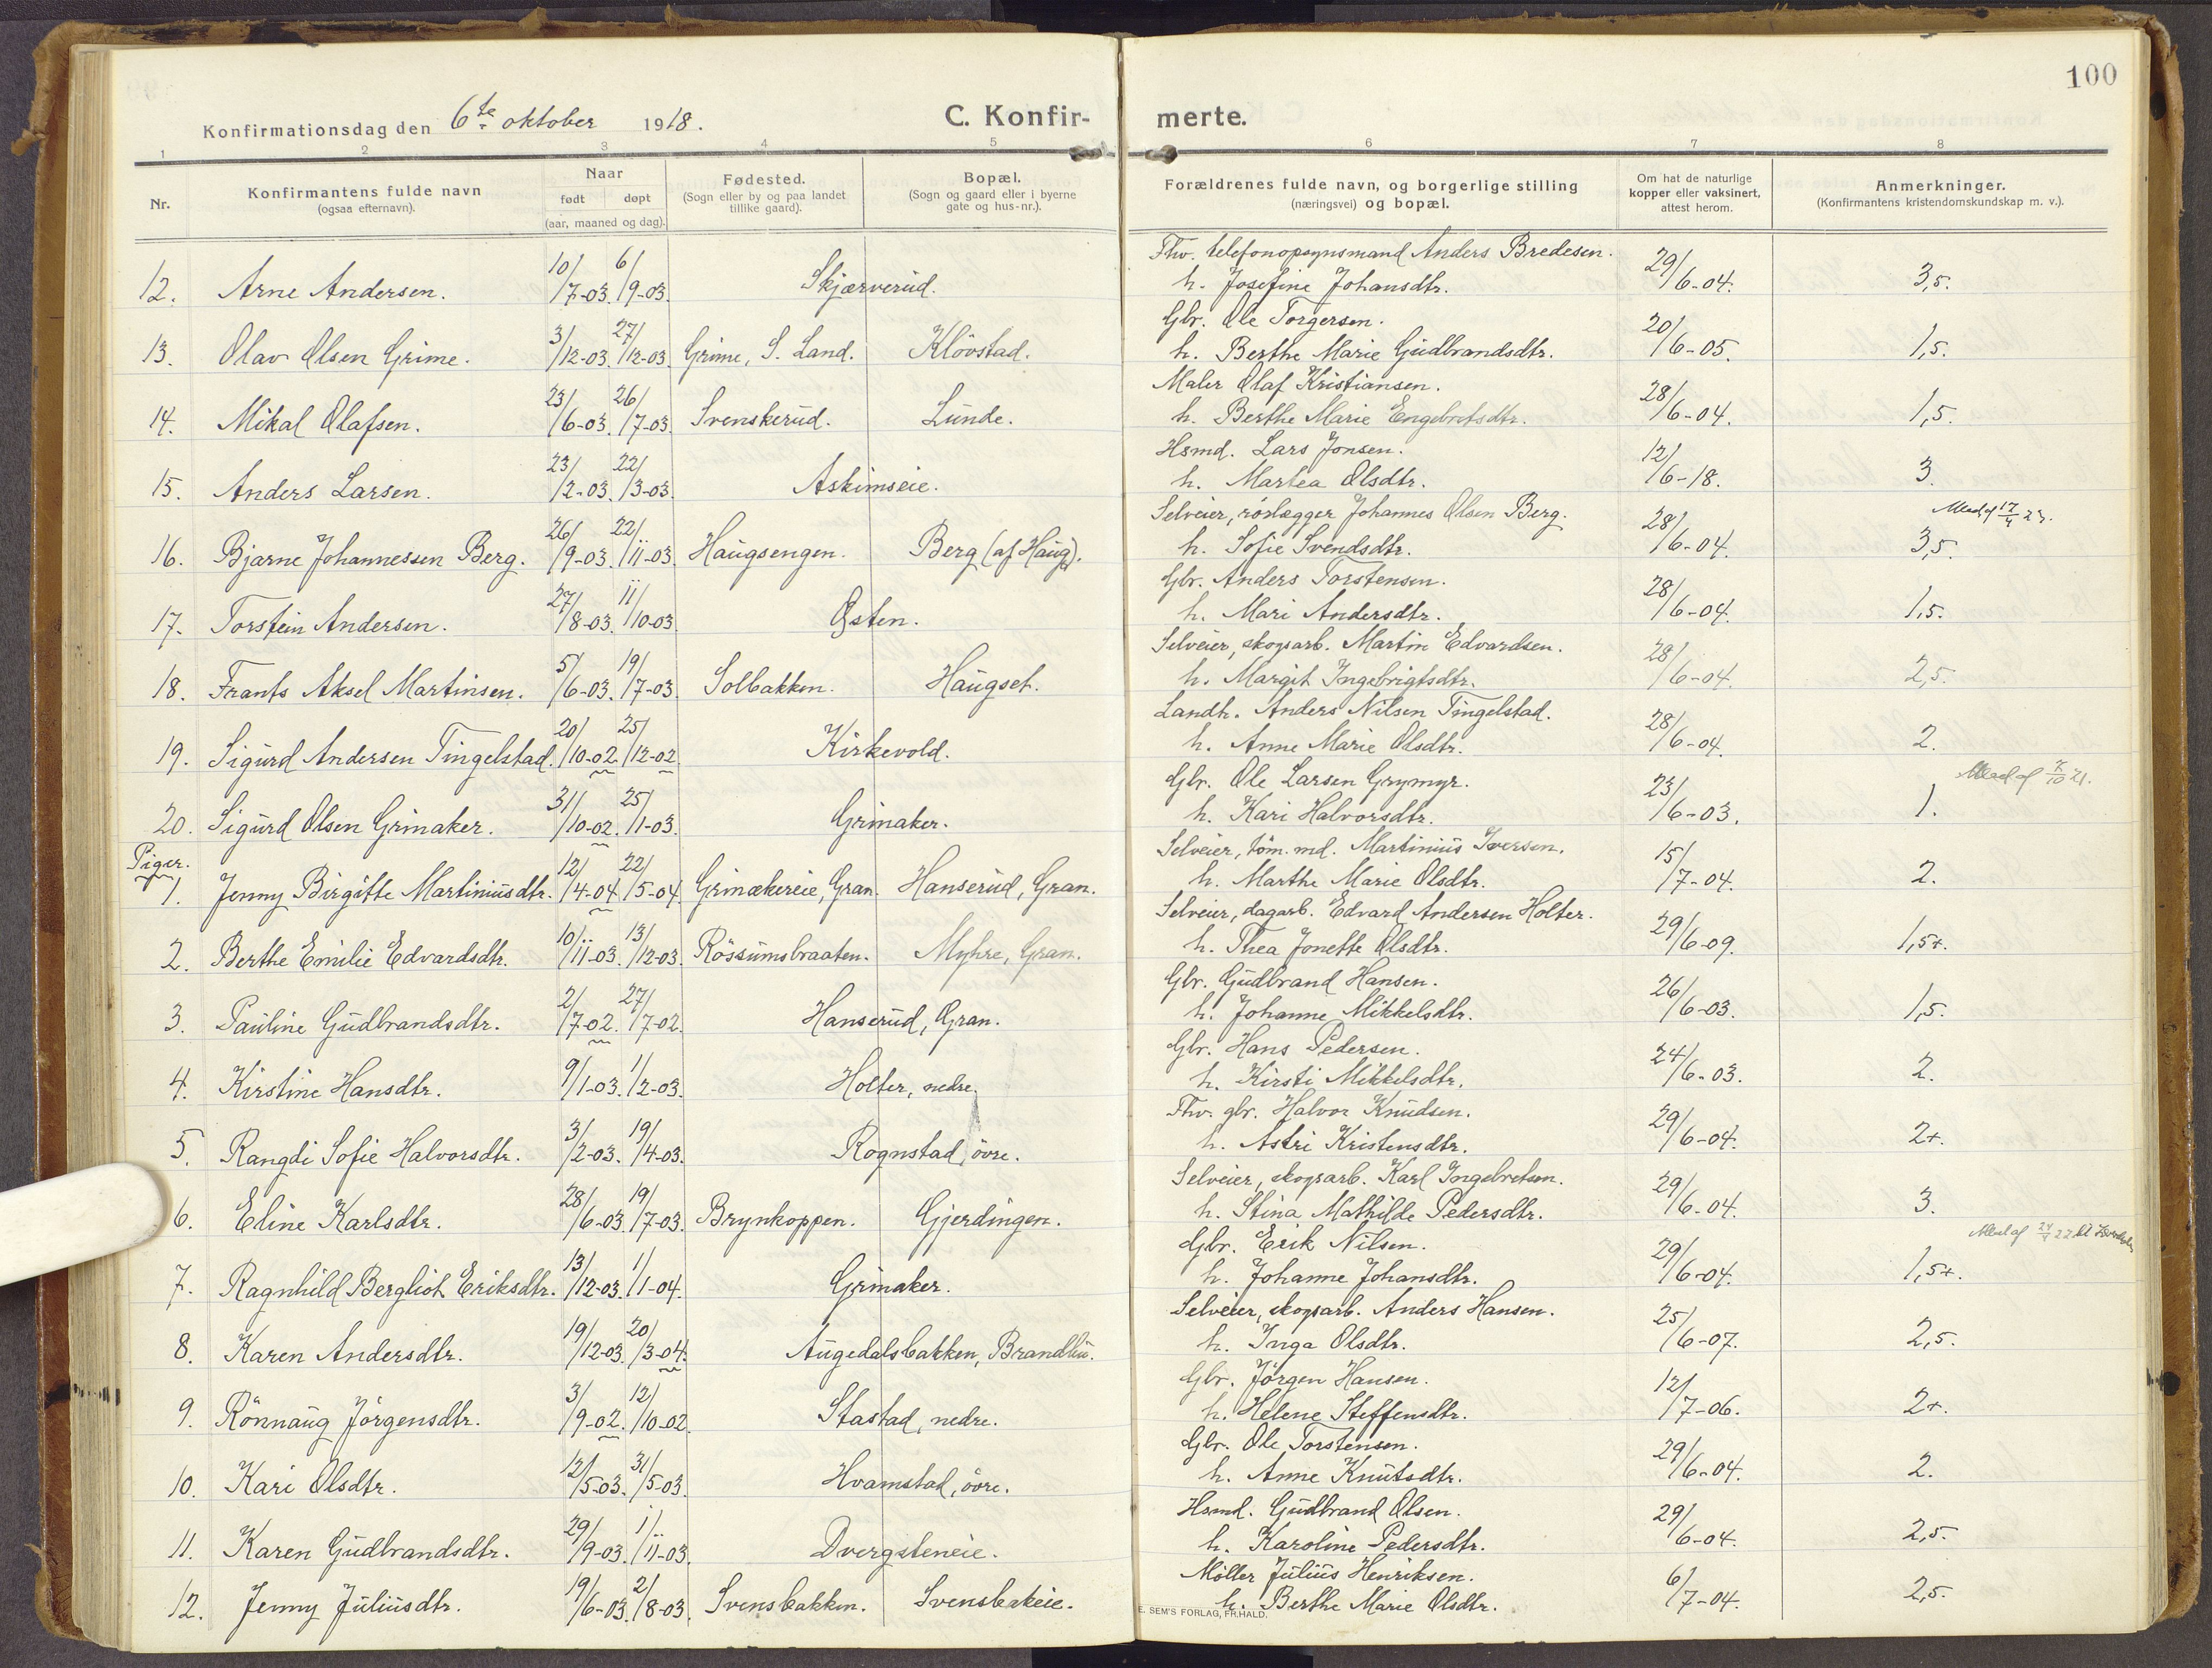 100
Konfirmationsdag den 6te oktober 1918.
C. Konfirmerte.
1 2 3 4 5 6 7 8
Nr.
Konfirmantens fulde navn
(ogsaa efternavn).
Naar
født døpt
(aar, maaned og dag).
Fødested.
(Sogn eller by og paa landet
tillike gaard).
Bopæl.
(Sogn og gaard eller i byerne
gate og hus-nr.).
Forældrenes fulde navn, og borgerlige stilling
(næringsvei) og bopæl.
Om hat de naturlige
kopper eller vaksinert,
attest herom.
Anmerkninger.
(Konfirmantens kristendomskundskap m. v.).
12. Arne Andersen. 10/7-03. 6/9-03. Skjærverud. Fhv. telefonopsynsmand Anders Bredesen. 29/6-04. 3,5.
h. Josefine Johansdtr.
13. Olav Olsen Grime. 3/12-03. 27/12-03. Grime, S. Land. Klövstad. Gbr. Ole Torgersen. 20/6-05. 1,5.
h. Berthe Marie Gudbrandsdtr.
14. Mikal Olafsen. 23/6-03. 26/7-03. Svenskerud. Lunde. Maler Olaf Kristiansen. 28/6-04. 1,5.
h. Berthe Marie Engebretsdtr.
15. Anders Larsen. 23/2-03. 22/3-03. Askimseie. Hsmd. Lars Jonsen. 12/6-18. 3.
h. Martea Olsdtr.
16. Bjarne Johannessen Berg. 26/9-03. 22/11-03. Haugsengen. Berg (af Haug). Selveier, rörlægger Johannes Olsen Berg. 28/6-04. 3,5.
h. Sofie Svendsdtr.
17. Torstein Andersen. 27/8-03. 11/10-03. Østen. Gbr. Anders Torstensen. 28/6-04. 1,5.
h. Mari Andersdtr.
18. Frants Aksel Martinsen. 5/6-03. 19/7-03. Solbakken. Haugset. Selveier, skogsarb. Martin Edvardsen. 28/6-04. 2,5.
h. Margit Ingebrigtsdtr.
19. Sigurd Andersen Tingelstad. 20/10-02. 25/12-02. Kirkevold. Landh. Anders Nilsen Tingelstad. 28/6-04. 2.
h. Anne Marie Olsdtr.
20. Sigurd Olsen Grinaker. 31/10-02. 25/1-03. Grinaker. Gbr. Ole Larsen Grymyr. 23/6-03. 1.
h. Kari Halvorsdtr.
Piger.
1. Jenny Birgitte Martiniusdtr. 12/4-04. 22/5-04. Grinækereie, Gran. Hanserud, Gran. Selveier, töm.md. Martinius Iversen. 15/7-04. 2.
h. Marthe Marie Olsdtr.
2. Berthe Emilie Edvardsdtr. 10/11-03. 13/12-03. Rössumsbraaten. Myhre, Gran. Selveier, dagarb. Edvard Andersen Holter. 29/6-09. 1,5+.
h. Thea Jonette Olsdtr.
3. Pauline Gudbrandsdtr. 2/7-02. 27/7-02. Hanserud, Gran. Gbr. Gudbrand Hansen. 26/6-03. 1,5.
h. Johanne Mikkelsdtr.
4. Kirstine Hansdtr. 9/1-03. 1/2-03. Holter, nedre. Gbr. Hans Pedersen. 24/6-03. 2.
h. Kirsti Mikkelsdtr.
5. Rangdi Sofie Halvorsdtr. 3/2-03. 19/4-03. Rognstad, övre. Fhv. gbr. Halvor Knudsen. 29/6-04. 2+.
h. Astri Kristensdtr.
6. Eline Karlsdtr. 28/6-03. 19/7-03. Brynkoppen. Gjerdingen. Selveier, skogsarb. Karl Ingebretsen. 29/6-04. 3.
h. Stina Mathilde Pedersdtr.
7. Ragnhild Bergliot Eriksdtr. 13/12-03. 1/1-04. Grinaker. Gbr. Erik Nilsen. 29/6-04. 1,5+.
h. Johanne Johansdtr.
8. Karen Andersdtr. 19/12-03. 20/3-04. Augedalsbakken, Brandbu. Selveier, skogsarb. Anders Hansen. 25/6-07. 2,5.
h. Inga Olsdtr.
9. Rönnaug Jörgensdtr. 3/9-02. 12/10-02. Stastad, nedre. Gbr. Jörgen Hansen. 12/7-06. 2+.
h. Helene Steffensdtr.
10. Kari Olsdtr. 12/5-03. 31/5-03. Hvamstad, övre. Gbr. Ole Torstensen. 29/6-04. 2.
h. Anne Knutsdtr.
11. Karen Gudbrandsdtr. 29/9-03. 1/11-03. Dvergsteneie. Hsmd. Gudbrand Olsen. 29/6-04. 2,5.
h. Karoline Pedersdtr.
12. Jenny Juliusdtr. 19/6-03. 2/8-03. Svensbakken. Svensbakeie. Möller Julius Henriksen. 6/7-04. 2,5.
h. Berthe Marie Olsdtr.
E. SEM'S FORLAG, FR.HALD.